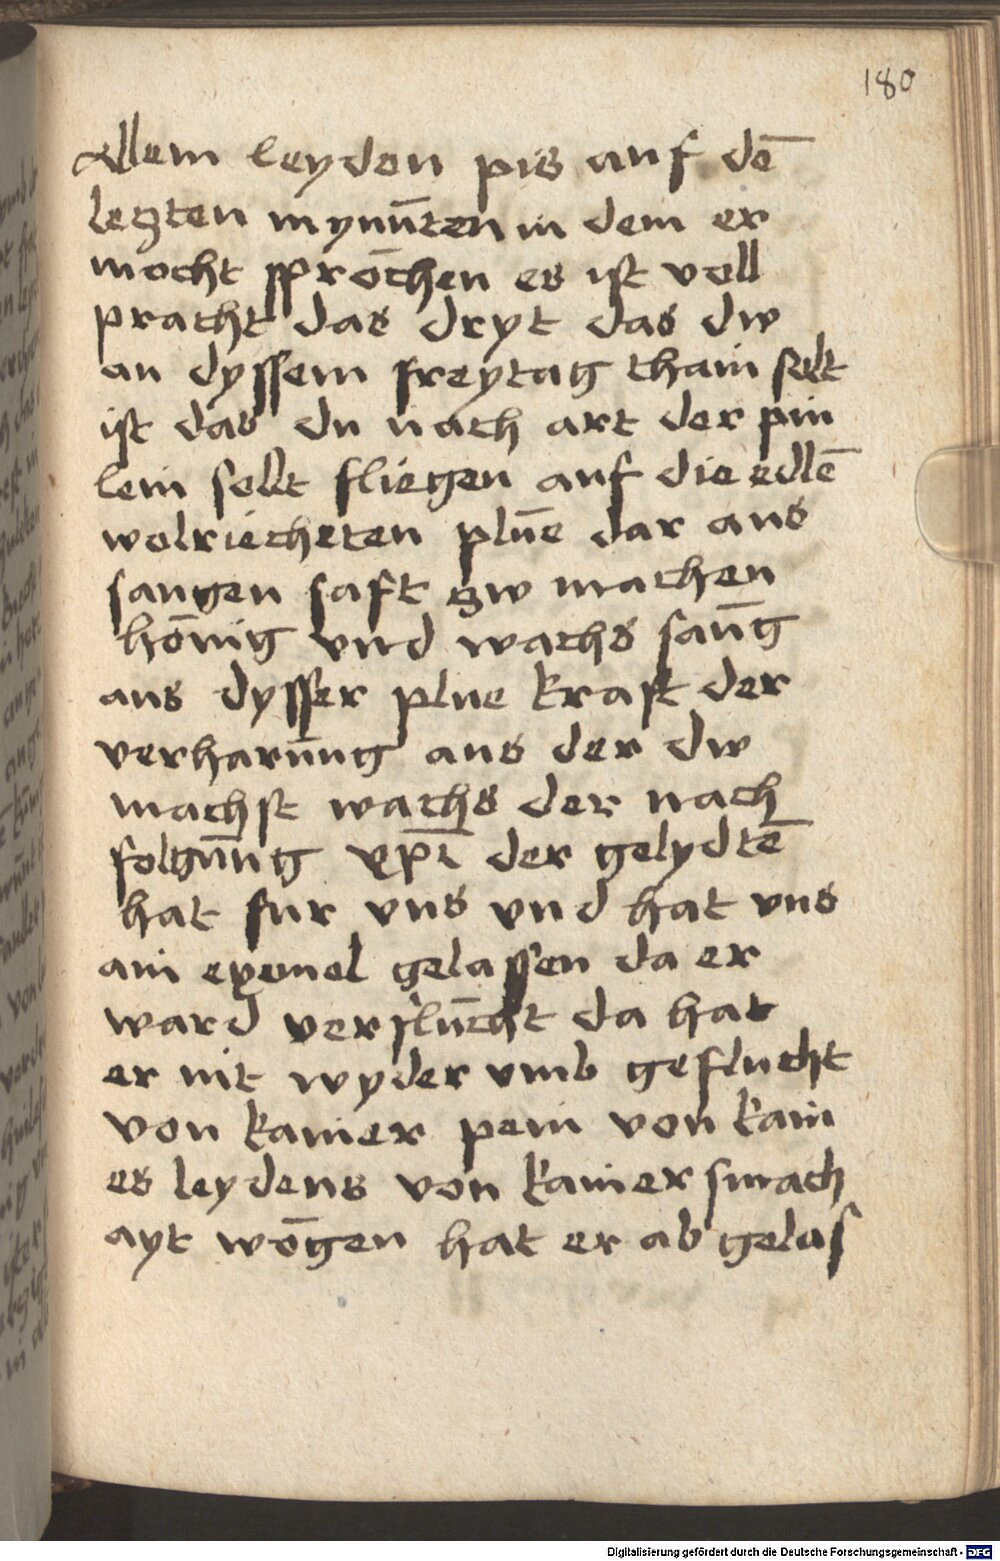 180
allem leyden pis auf dē
leczten mynūten in dem er
mocht sprōchen es ist voll
pracht das dryt das dw
an dyssem freytag thain solt
ist das du nach art der pin
lein sollt fliegen auf die edlē
wolriecheten plūe dar aus
saugen saft zw machen
hōnig vnd wachs saūg
aus dysser plue kraft der
verharūng aus der dw
machst wachs der nach
folgūng xp̄i der gelydtē
hat fur vns vnd hat vns
ain exemel gelassen da er
ward verflūcht da hat
er nit wyder vmb geflucht
von kainer pein von kain
es leydens von kainer smach
ayt wōgen hat er ab gelas
Digitalisierung gefördert durch die Deutsche Forschungsgemeinschaft - DFG